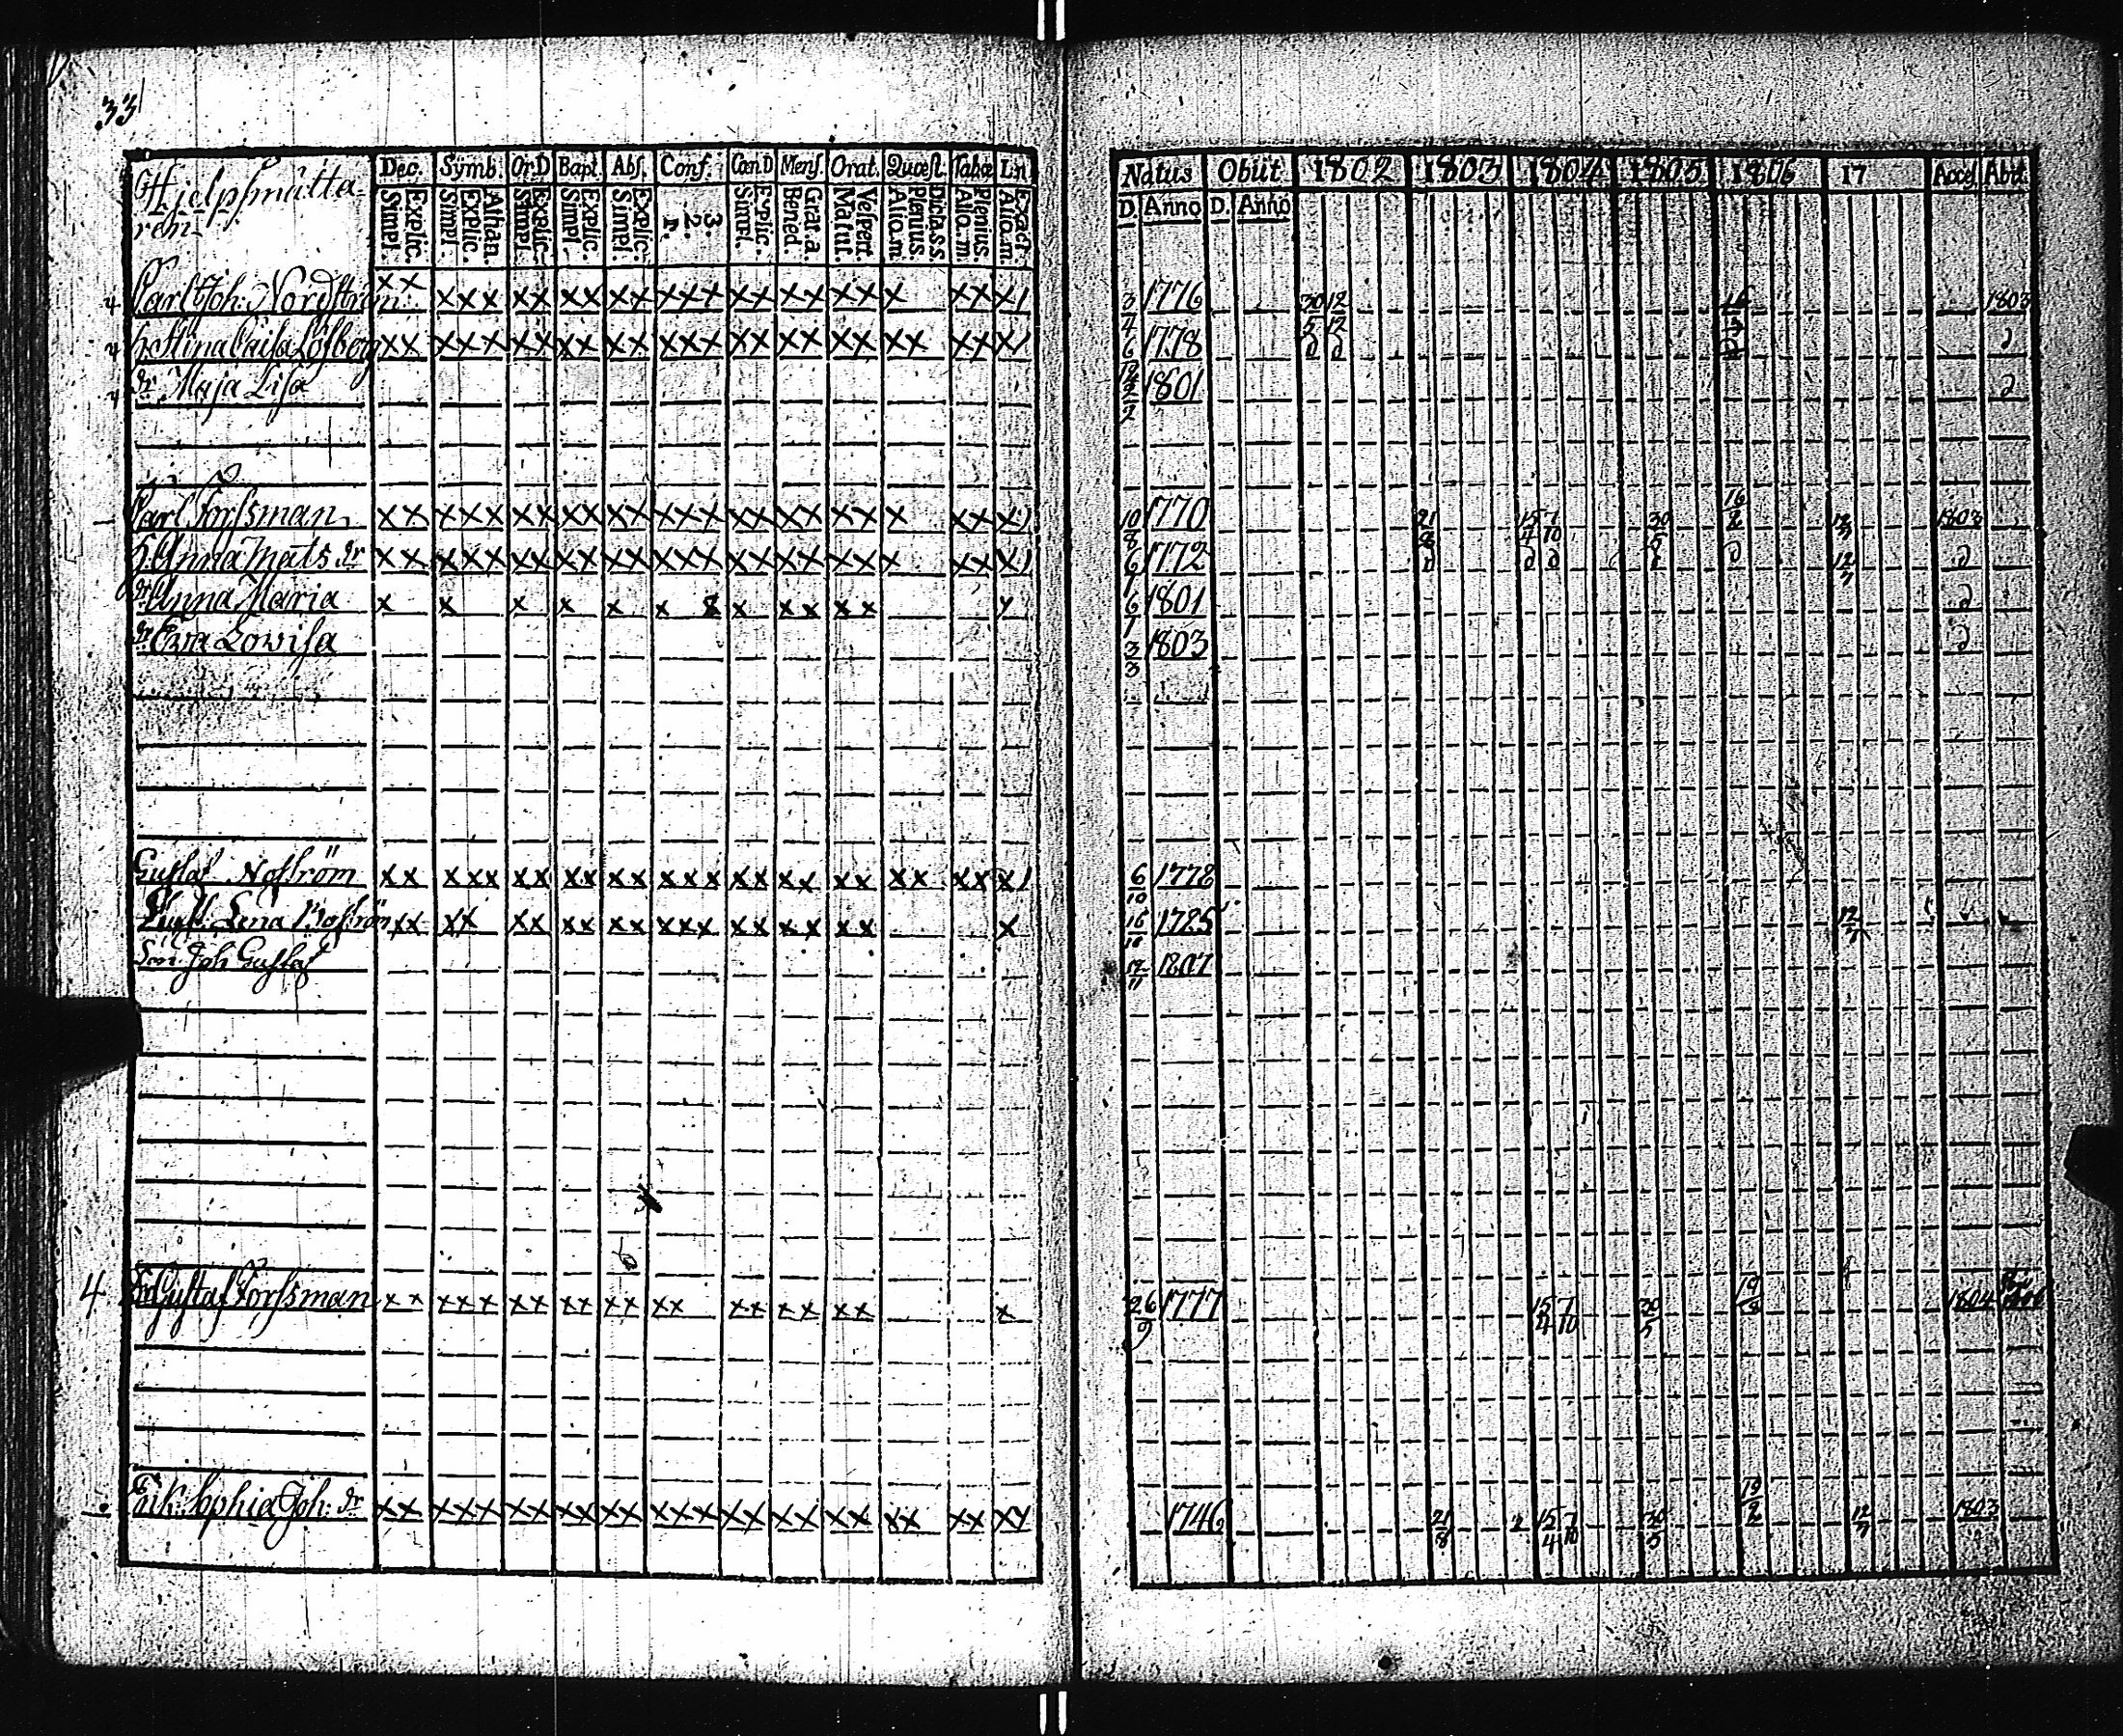 33
Dec. Symb. Or.D Bapt. Abs. Conf. Can.D Mens. Orat. Quæst. Tabæ Lin
Hjelpsmätta-
ren
Simpl. Explic. Simpl. Explic. Athan. Simpl. Explic. Simpl. Explic. Simpl. Explic. 1. 2. 3. Simpl. Explic. Bened. Grat. a. Matut. Vespert. Alio. m Plenius. Dict. a ss. Alio. m Plenius. Alio. m Exact.
Natus Obiit 1802 1803 1804 1805 1806 17 Acces. Abit.
D. Anno D. Anno
4 Carl Joh: Nordström xx xxx xx xx xx xxx xx xx xx x xx x) 3/4 1776 30/5 12/12 1803
4 h. Stina Caisa Löfberg xx xxx xx xx xx xxx xx xx xx xx xx x) 6 1778 d d d d
4 dr Maja Lisa 1801 d
Carl Forssman xx xxx xx xx xx xxx xx xx xx x xx x) 10/8 1770 21/8 15/4 7/10 30/5 16/2 12/7 1803
h. Anna Mats dr xx xxx xx xx xx xxx xx xx xx x xx x) 6/1 1772 d d d d 12/7 d
dr Anna Maria x x x x x x x xx xx 6/1 1801 d
dr Eva Lovisa 3/3 1803 d
Gustaf Noström xx xxx xx xx xx xxx xx xx xx xx xx x) 6/10 1778
Lena xx xx xx xx xx xxx xx xx xx x 1785 12/7
Son Joh Gustaf 1807
4 Gustaf Forssman xx xxx xx xx xx xx xx xx xx x 26/9 1777 15/4 7/10 30/5 1804
Enk. Sophia Joh: dr xx xxx xx xx xx xxx xx xx xx xx xx xy 1746 21/8 2 15/4 7/10 30/5 19/2 12/7 1803